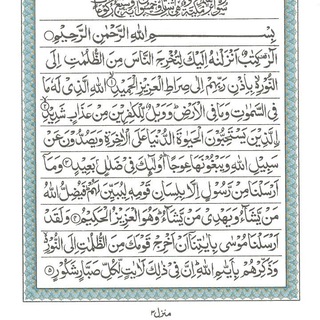 بِسْمِ اللهِ الرَّحْمٰنِ الرَّحِيْمِ
الٓرٰ كِتٰبٌ اَنْزَلْنٰهُ اِلَيْكَ لِتُخْرِجَ النَّاسَ مِنَ الظُّلُمٰتِ اِلَى
النُّوْرِ بِاِذْنِ رَبِّهِمْ اِلٰى صِرَاطِ الْعَزِيْزِ الْحَمِيْدِ ۱ اللهِ الَّذِيْ لَهٗ مَا
فِي السَّمٰوٰتِ وَمَا فِي الْاَرْضِ وَوَيْلٌ لِّلْكٰفِرِيْنَ مِنْ عَذَابٍ شَدِيْدِ ۲
الَّذِيْنَ يَسْتَحِبُّوْنَ الْحَيٰوةَ الدُّنْيَا عَلَى الْاٰخِرَةِ وَيَصُدُّوْنَ عَنْ
سَبِيْلِ اللهِ وَيَبْغُوْنَهَا عِوَجًا اُولٰٓئِكَ فِيْ ضَلٰلٍۭ بَعِيْدٍ ۳ وَمَا
اَرْسَلْنَا مِنْ رَّسُوْلٍ اِلَّا بِلِسَانِ قَوْمِهٖ لِيُبَيِّنَ لَهُمْ فَيُضِلُّ اللهُ
مَنْ يَّشَآءُ وَيَهْدِيْ مَنْ يَّشَآءُ وَهُوَ الْعَزِيْزُ الْحَكِيْمُ ۴ وَلَقَدْ
اَرْسَلْنَا مُوْسٰى بِاٰيٰتِنَآ اَنْ اَخْرِجْ قَوْمَكَ مِنَ الظُّلُمٰتِ اِلَى النُّوْرِ
وَذَكِّرْهُمْ بِاَيّٰىمِ اللهِ اِنَّ فِيْ ذٰلِكَ لَاٰيٰتٍ لِّكُلِّ صَبَّارٍ شَكُوْرٍ ۵
منزل ۳